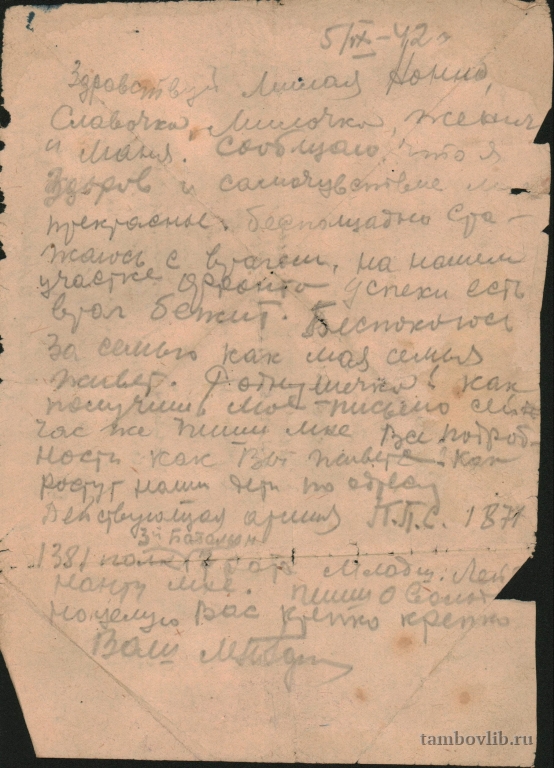 5/IX-42 г
Здравствуй Милая Нонна,
Славочка Милочка, Женя
и Маня. Сообщаю, что я
Здоров и самочувствие
прекрасные. беспощадно Сра-
жаюсь с врагом, на нашем
участке фронта успехи есть
враг бежит. Беспокоюсь
За семью как моя семья
живет. Как
получишь мое письмо сей
час же пиши мне Все подроб-
ности как Вы живете. Как
ростут наши дети по адресу
Действующая армия П.П.С. 1871
3й Баталион
1381 полк Младш. Лей
нанту мне. пиши о
поцелую Вас крепко крепко
Ваш
tambovlib.ru